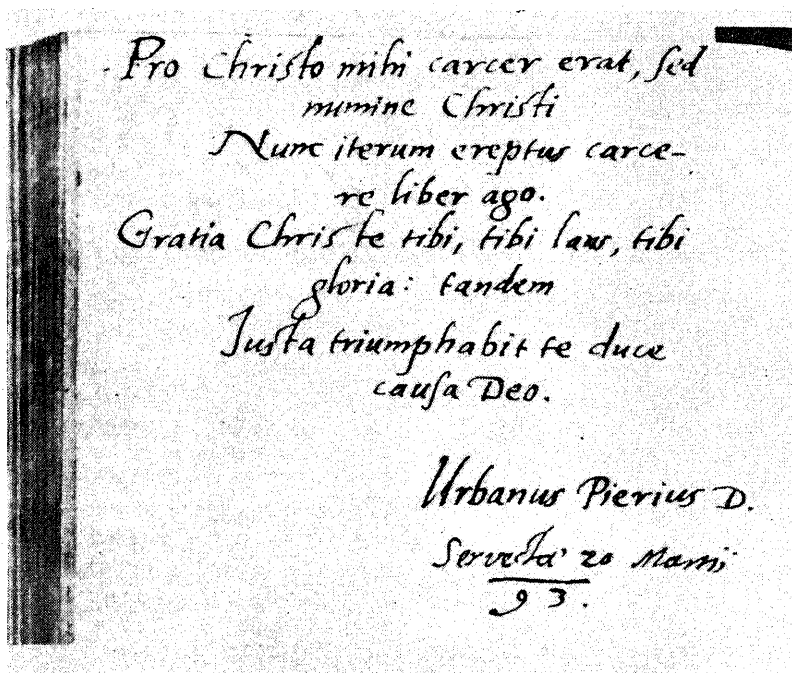 Pro Christo mihi carcer erat, sed
numine Christi
Nunc iterum ereptus carce-
re liber ago.
Gratia Christe tibi, tibi laus, tibi
gloria: tandem
Iusta triumphabit te duce
causa Deo.
Urbanus Pierius D.
Servestæ 20 Martij
93.